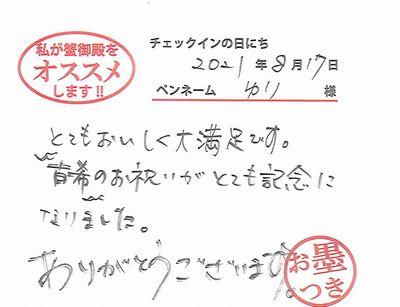 私が蟹御殿を
オススメ
します!!
チェックインの日にち
2021年8月17日
ペンネーム ゆり 様
とてもおいしく大満足です。
百希のお祝いがとても記念に
なりました。
ありがとうございます。
お墨
つき